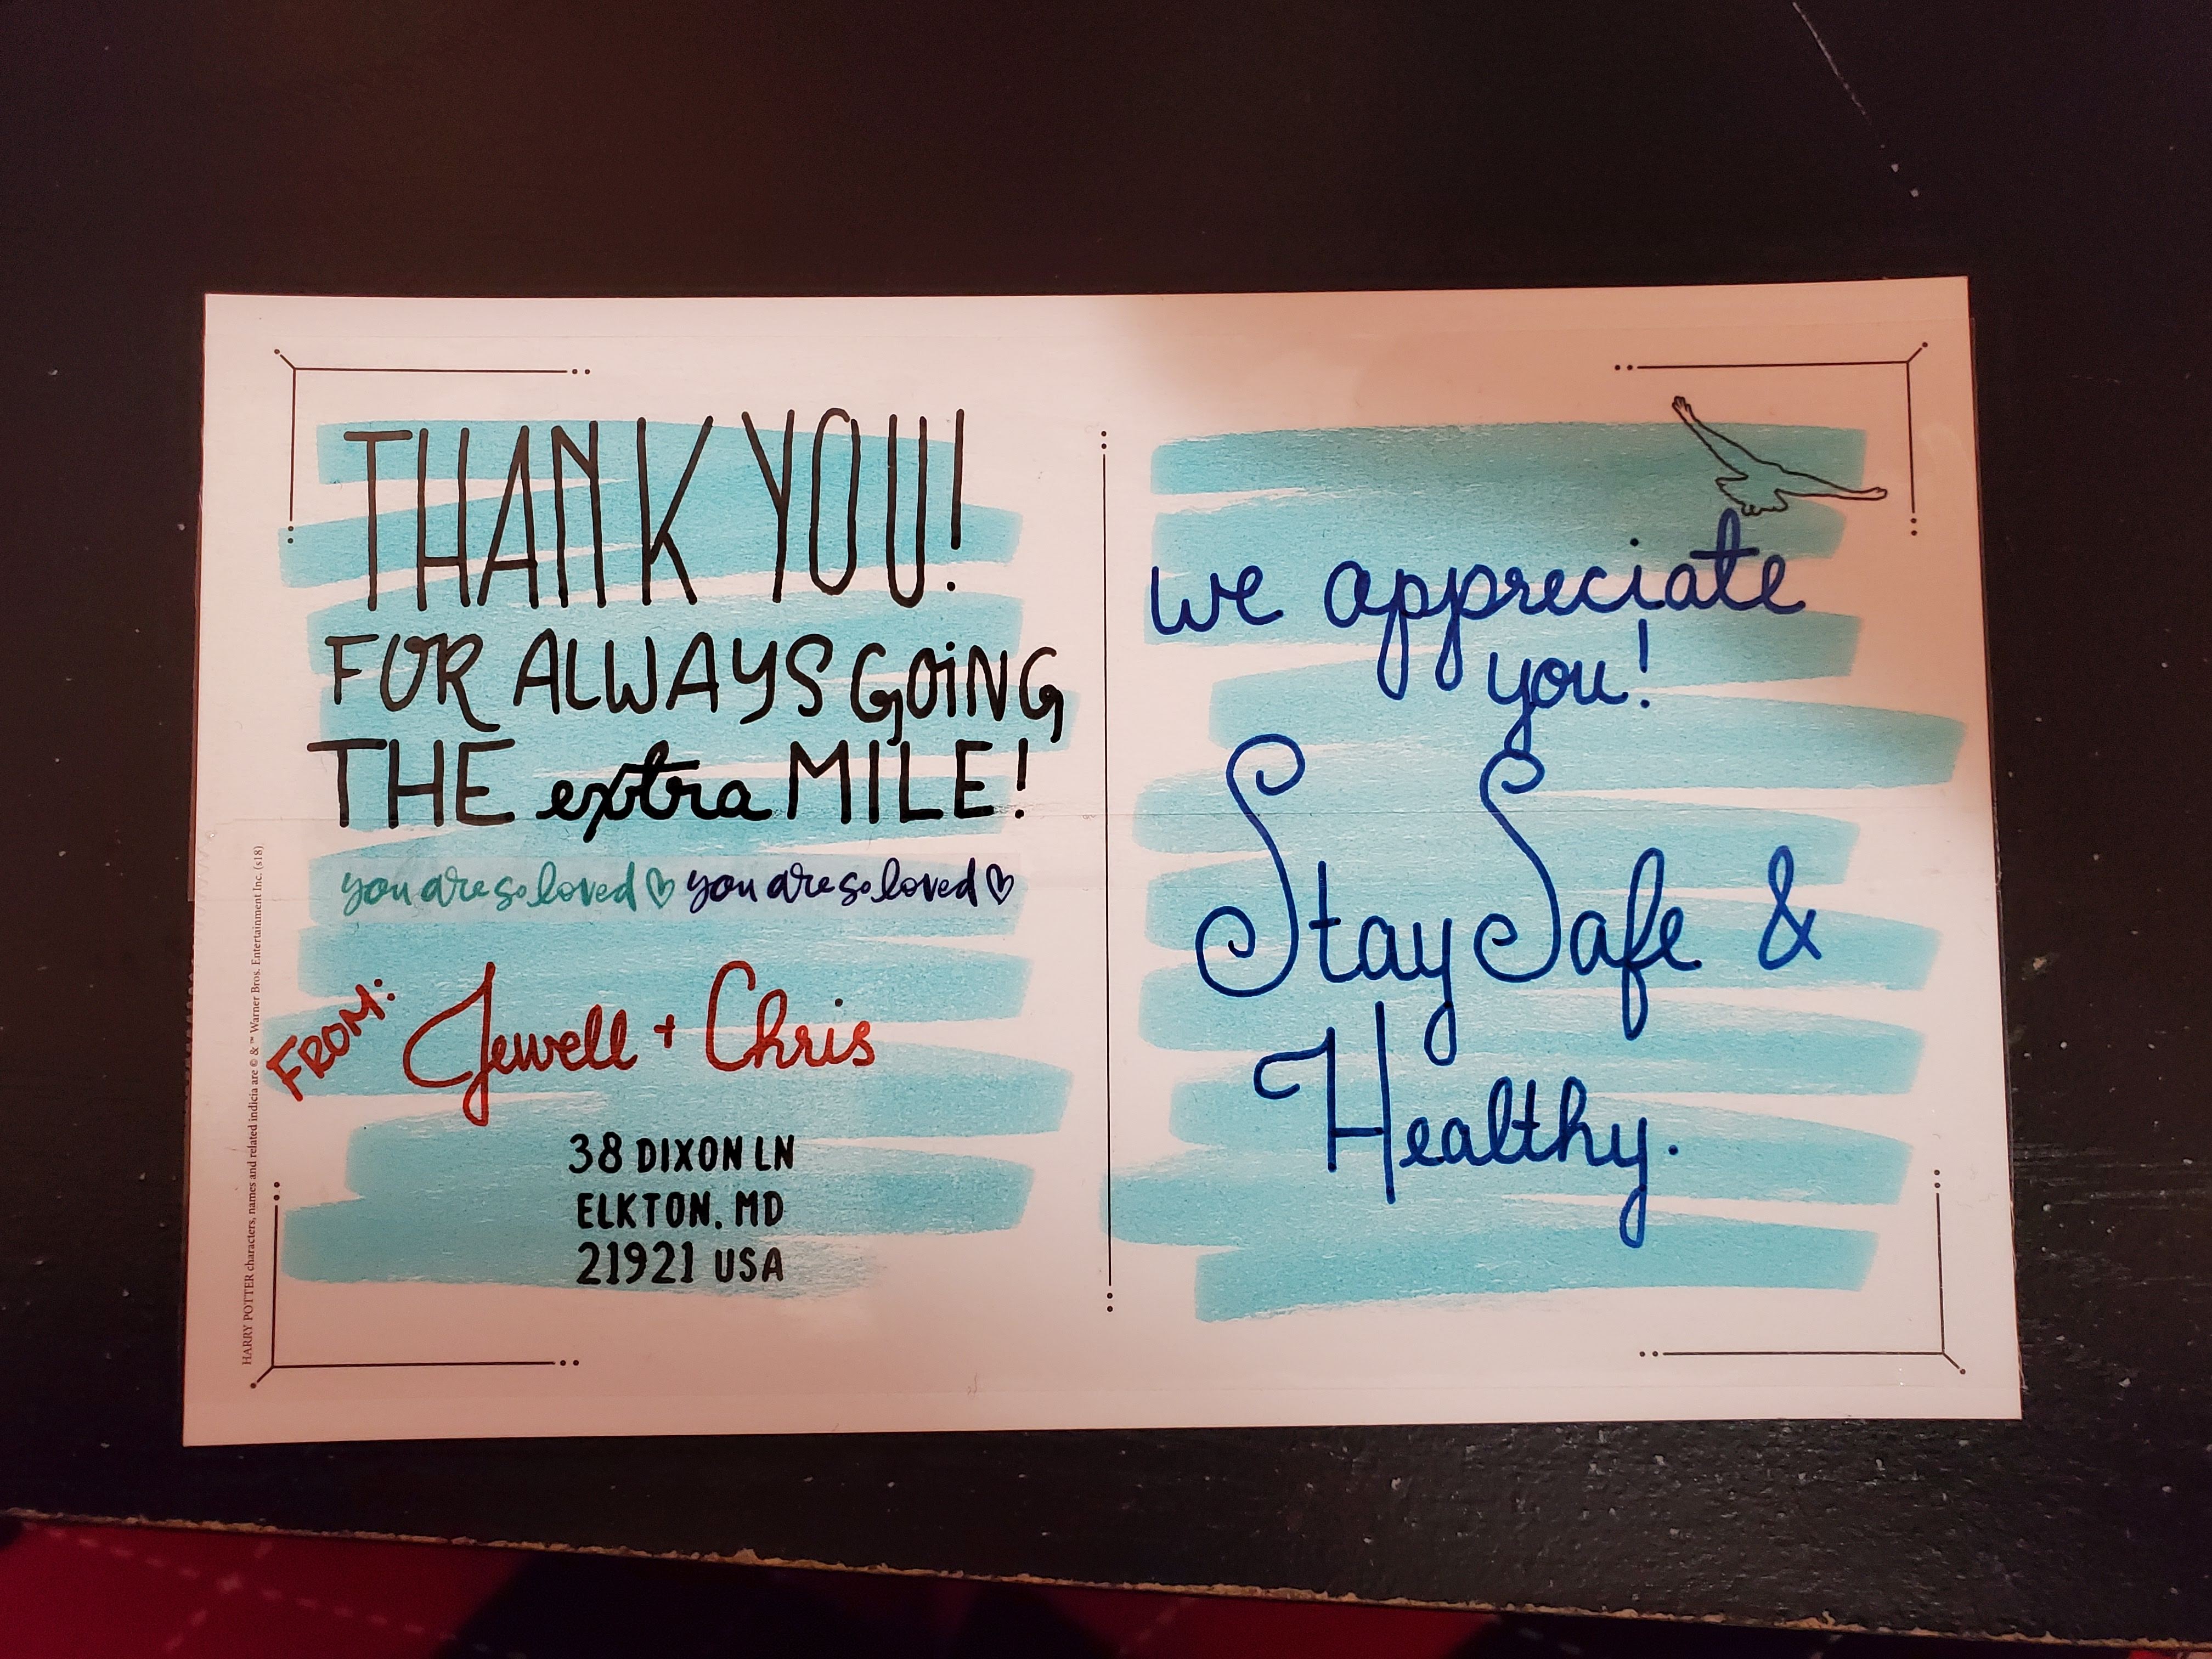 THANK YOU!
FOR ALWAYS GOING
THE extra MILE!
you are so loved you are so loved
FROM: Jewell + Chris
38 DIXON LN
ELKTON, MD
21921 USA
HARRY POTTER characters, names and related indicia are © & ™ Warner Bros. Entertainment Inc. (s18)
we appreciate
you!
Stay Safe &
Healthy.